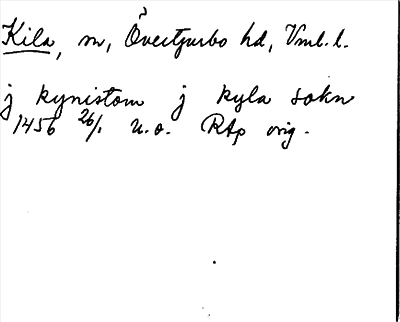 Kila, sn, Övertjurbo hd, Vml. l.
j kynistom j kyla sokn
1456 26/1 u.o. RAp orig.